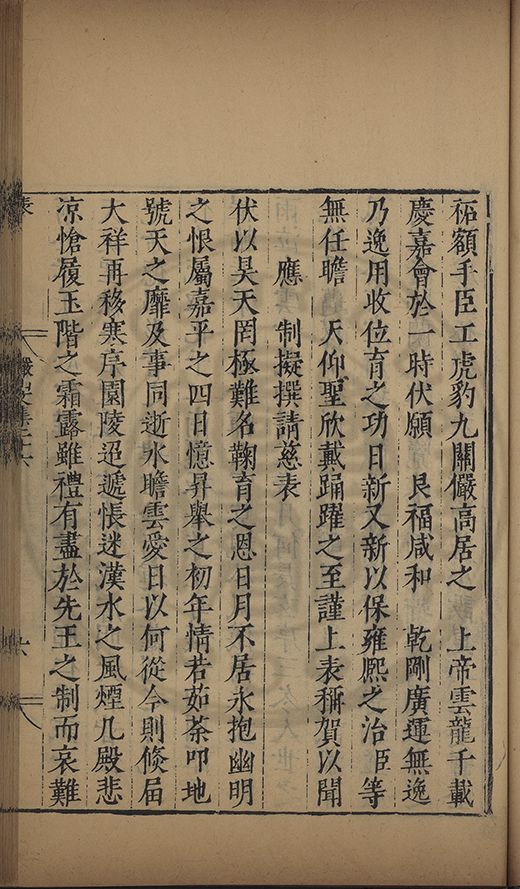 祏額手臣工虎豹九關儼高居之　上帝雲龍千載
慶嘉會於一時伏願　艮福咸和　乾剛廣運無逸
乃逸用收位育之功日新又新以保雍熙之治臣等
無任瞻　天仰聖欣戴踊躍之至謹上表稱賀以聞
應　制擬撰請慈表
伏以昊天罔極難名鞠育之恩日月不居永抱幽明
之恨屬嘉平之四日憶昇舉之初年情若茹荼叩地
號天之靡及事同逝水瞻雲愛日以何從今則倐屆
大祥再移寒序園陵迢遞悵迷漢水之風煙几殿悲
凉愴履玉階之霜露雖禮有盡於先王之制而哀難
表
六